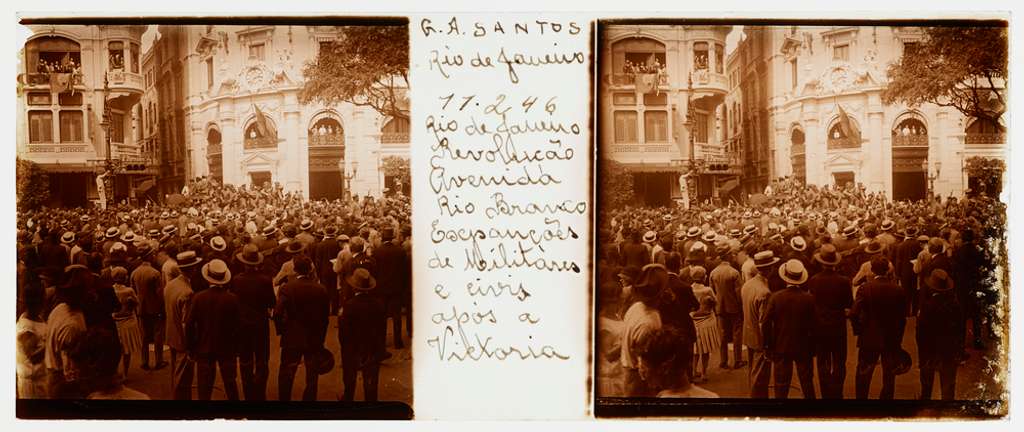 G. A. SANTOS
Rio de Janeiro
11.2 46
Rio de Janeiro
Revolução
Avenida
Rio Branco
Exepanções
de Militares
e civis
apos a
Victoria